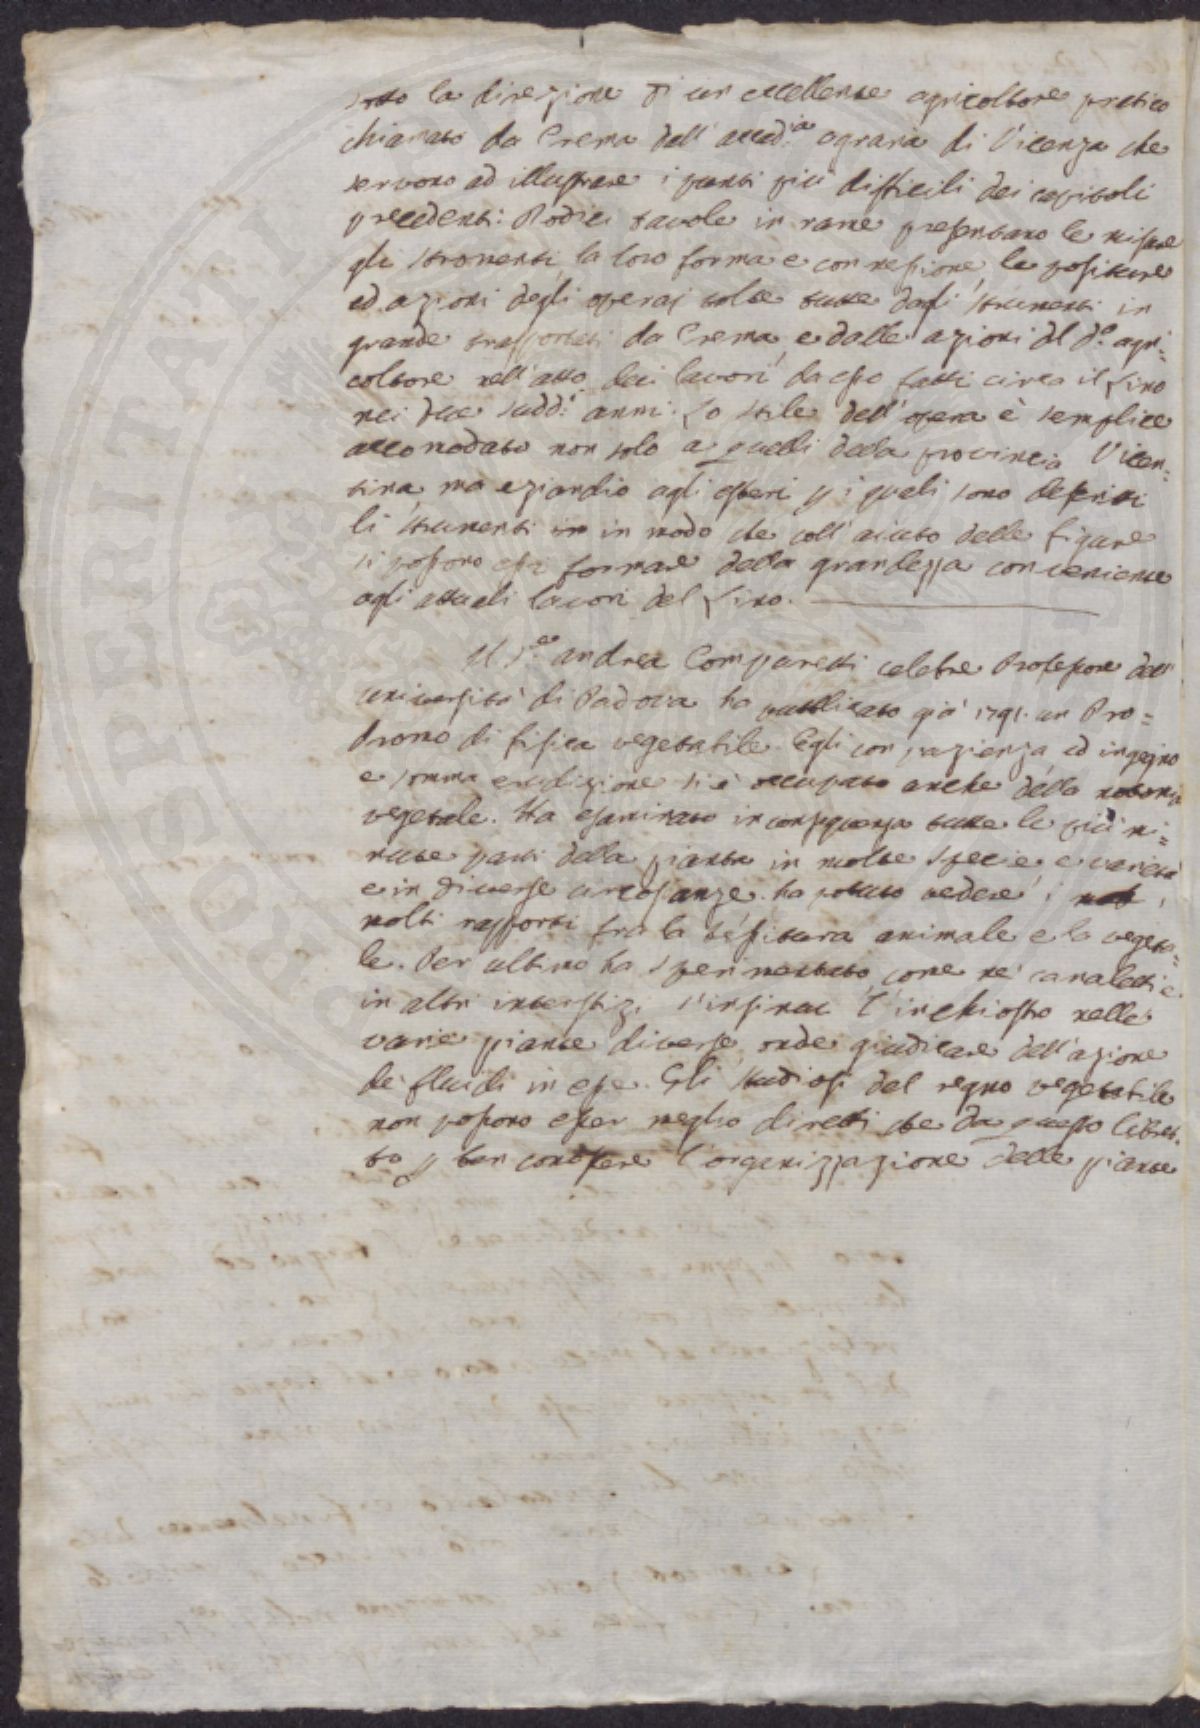 sotto la direzione di un eccellente agricoltore pratico
chiamato da Crema dall' accad.ia agraria di Vicenza che
servono ad illustrare i punti più difficili dei capitoli
precedenti: Dodici tavole in rame presentano le misure
gli stromenti, la loro forma e connessione, le positure
ed azioni degli operaj tolte tutte dagli strumenti in
grande trasportati da Crema, e dalle azioni del d.o agri=
coltore nell' atto dei lavori da esso fatti circa il Lino
nei due sudd.i anni. Lo stile dell' opera è semplice
accomodato non solo a quelli della provincia Vicen=
tina, ma eziandio agli esteri p i quali sono descritti
li strumenti in in modo che coll' aiuto delle figure
si possono essi formare della grandezza conveniente
agli attuali lavori del Lino.
Il S.r Andrea Comparetti celebre Professore dell'
università di Padova ha pubblicato già 1791. un Pro=
dromo di fisica vegetabile. Egli con pazienza, ed ingegno
e somma erudizione si è occupato anche della notomia
vegetale. Ha esaminato in conseguenza tutte le più mi=
nute parti della pianta in molte specie e varietà
e in diverse circostanze. ha potuto vedere i
molti rapporti fra la tessitura animale e la vegeta=
le. Per ultimo ha sperimentato come ne' canaletti e
in altri interstizj s'insinui l'inchiostro nelle
varie piante diverse onde giudicare dell' azione
de' fluidi in esse. Gli studiosi del regno vegetabile
non possono esser meglio diretti che da questo libret=
to p ben conoscere l'organizzazione delle piante